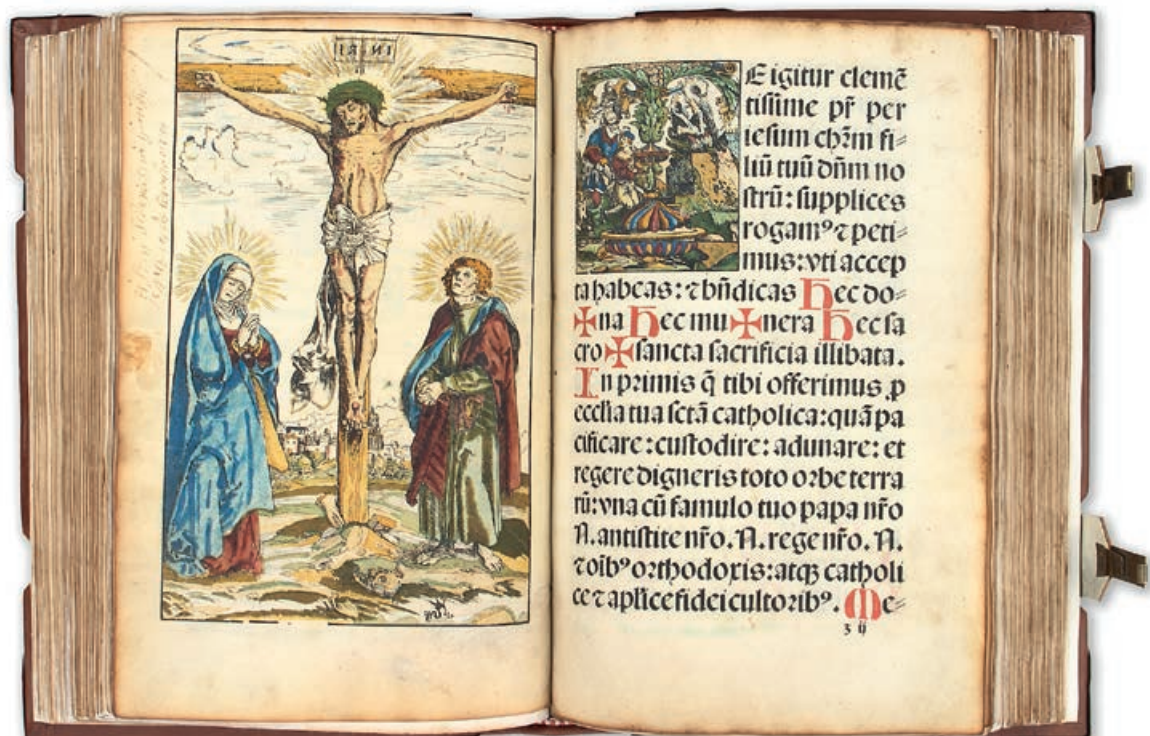 INRI
E igitur clemē
tissime pr̄ per
iesum chꝛm̄ fi⸗
liū tuū dn̄m no
strū: supplices
rogamꝰ ⁊ peti⸗
mus: vti accep
ta habeas: ⁊ bn̄dicas Hec do⸗
✠na Hec mu✠nera Hec sa
cro✠sancta sacrificia illibata.
In primis q̄ tibi offerimus ꝓ
ecclīa tua sctā catholica: quā pa
cificare: custodire: adunare: et
regere digneris toto oꝛbe terra
rū: vna cū famulo tuo papa nr̄o
N. antistite nr̄o. N. rege nr̄o. N.
⁊ oib̄ꝰ oꝛthodoxis: atqꝫ catholi
ce ⁊ apl̄ice fidei cultoꝛibꝰ. Me⸗